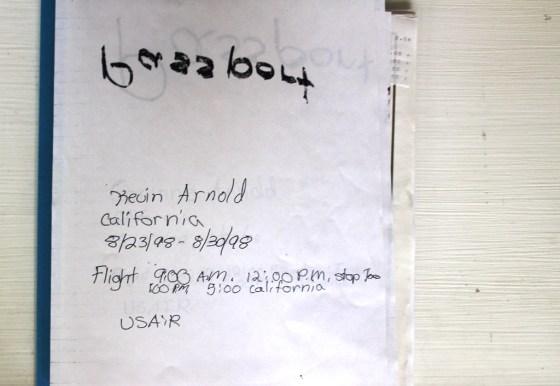 passport
Kevin Arnold
California
8/23/98 - 8/30/98
Flight 9:00 A.M. 12:00 P.M. stop Too
1:00 PM 5:00 California
USAiR